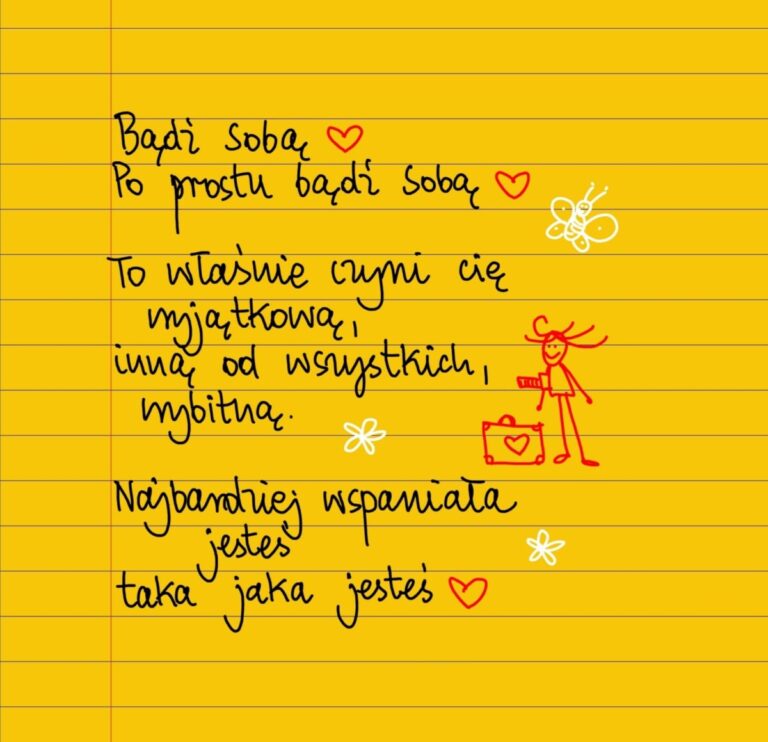 Bądź sobą
Po prostu bądź sobą
To właśnie czyni cię
wyjątkową,
inną od wszystkich,
wybitną.
Najbardziej wspaniała
jesteś
taka jaka jesteś